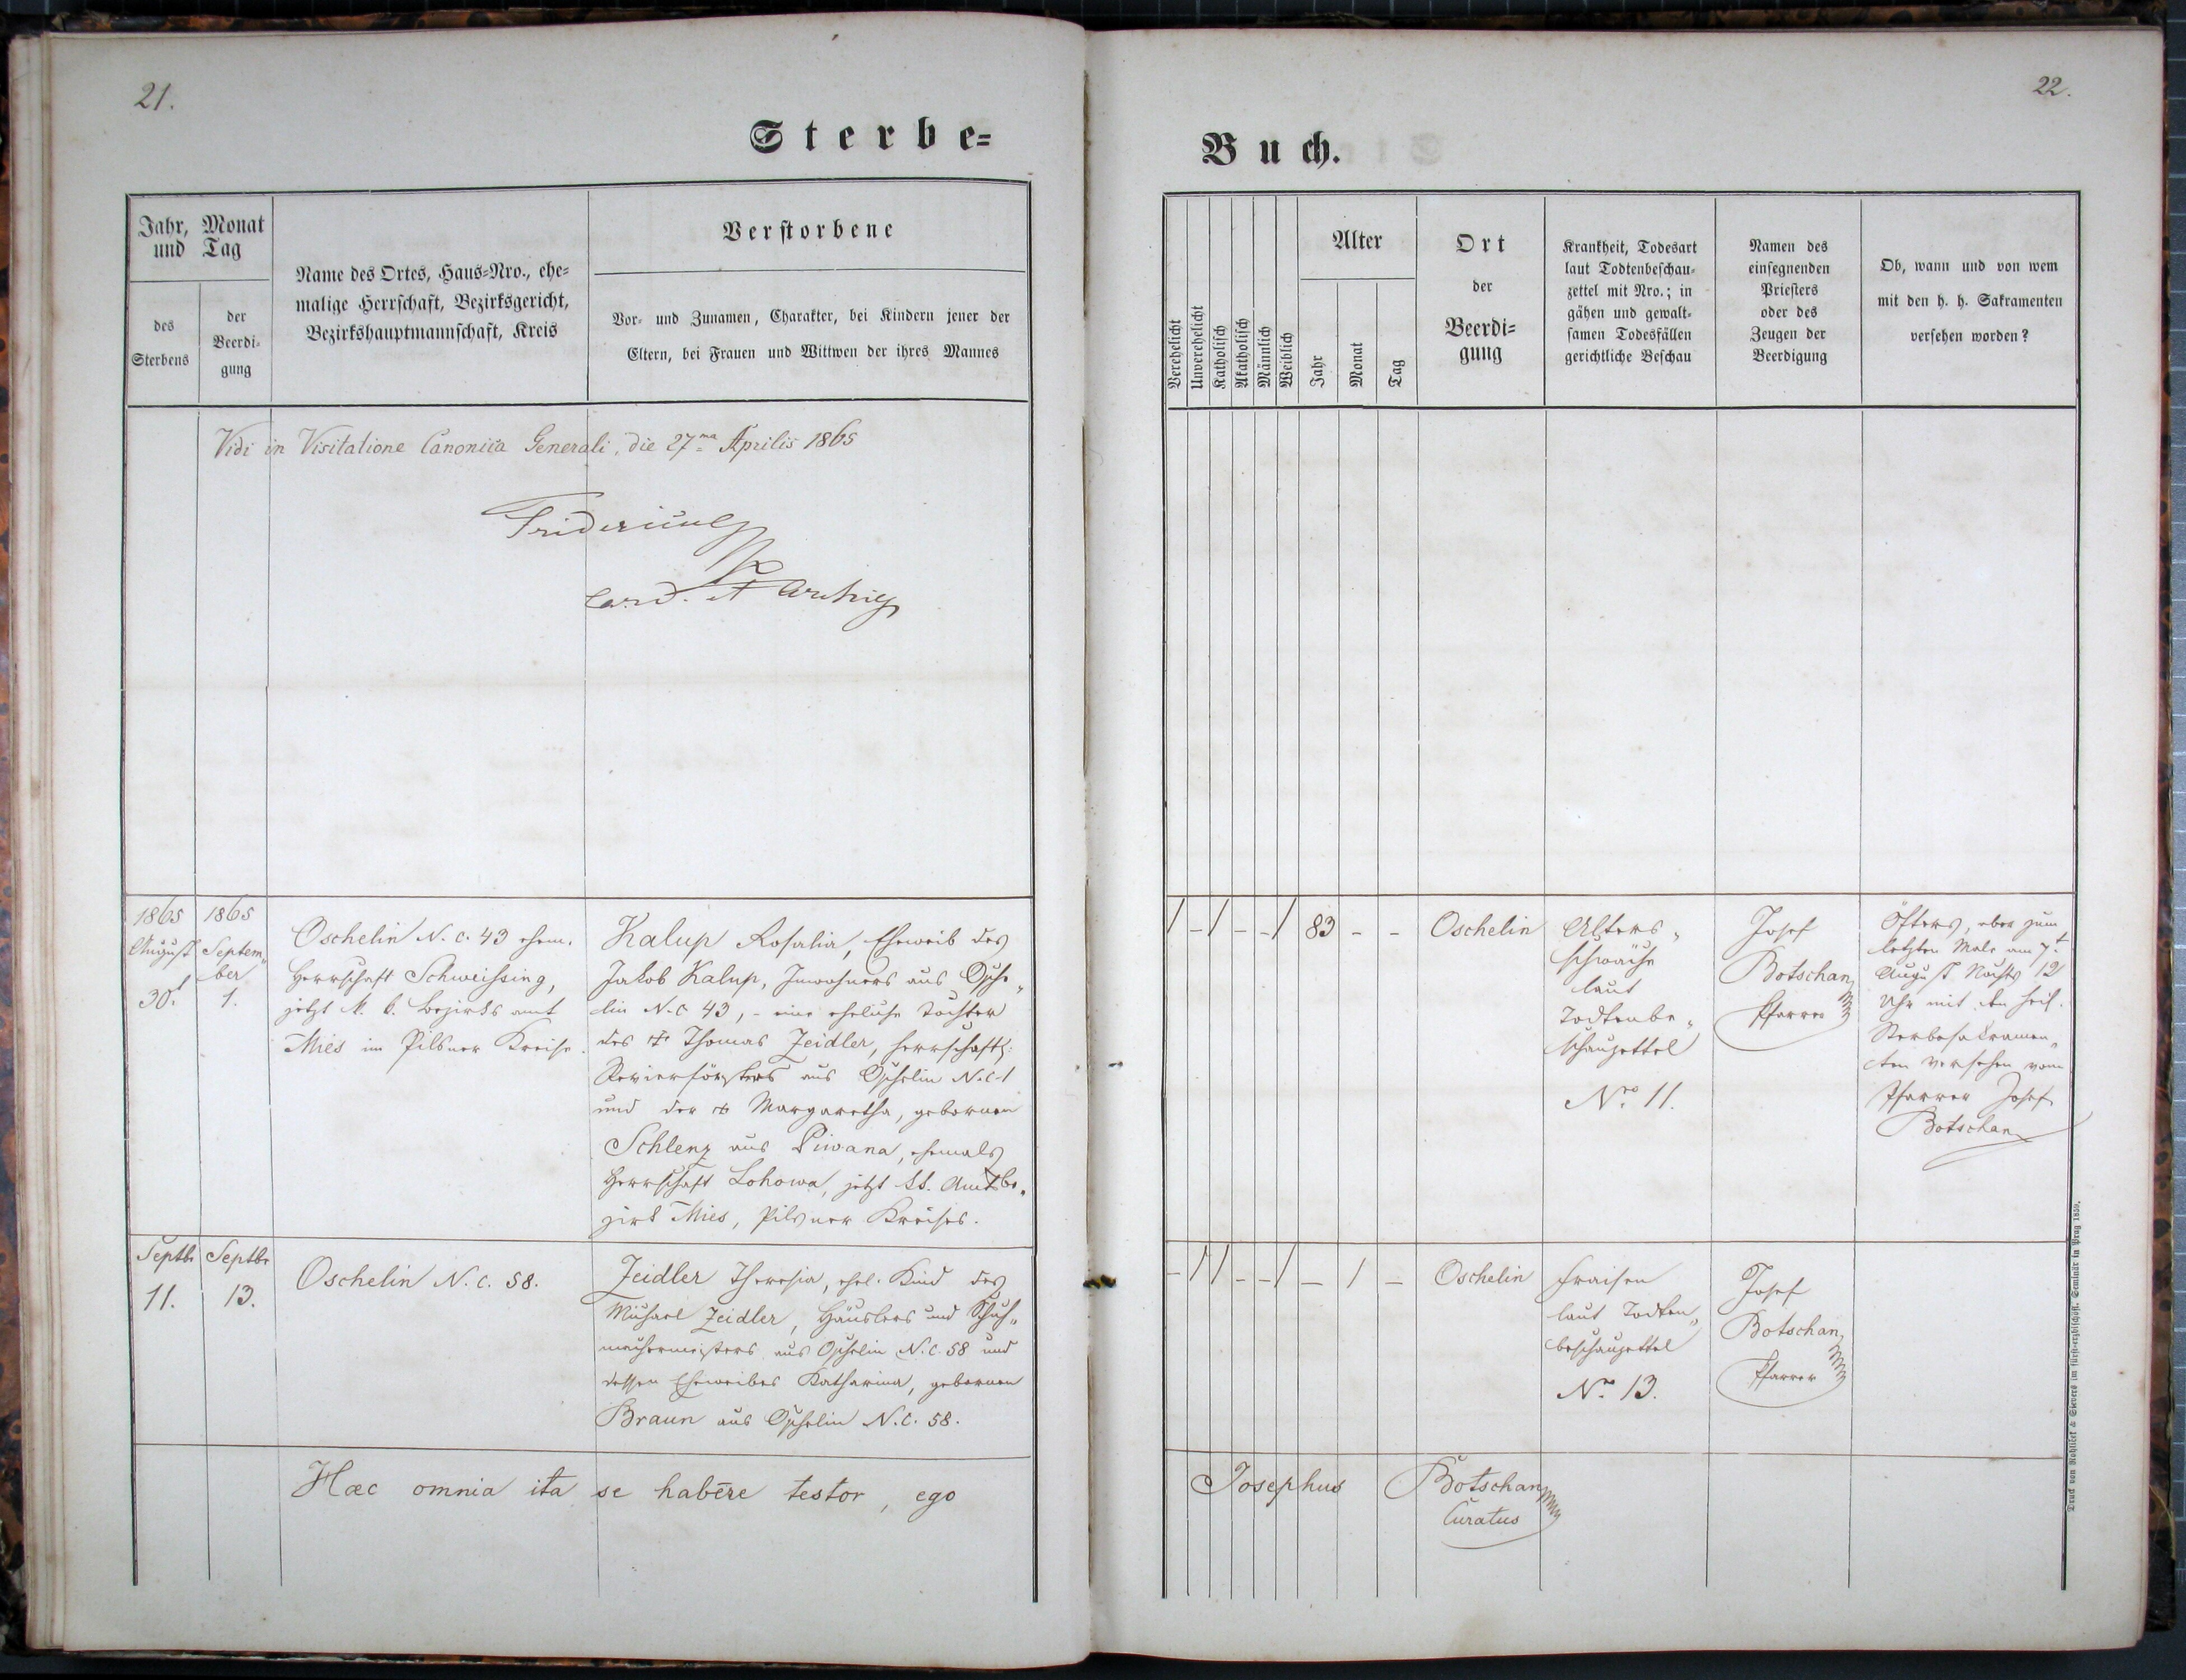 21.
Sterbe=
Jahr, Monat
und Tag
des
Sterbens
der
Beerdi-
gung
Name des Ortes, Haus=Nro., ehe=
malige Herrschaft, Bezirksgericht,
Bezirkshauptmannschaft, Kreis
Verstorbene
Vor- und Zunamen, Charakter, bei Kindern jener der
Eltern, bei Frauen und Wittwen der ihres Mannes
Vidi in Visitatione Canonica Generali, die 27ma Aprilis 1865
Fridericus
Card. et Archiep
1865
August
30.
1865
Septem„
ber
1.
Oschelin N. c. 43 ehem.
Herrschaft Schweissing,
jetzt k. k. Bezirksamt
Mies im Pilsner Kreise.
Kalup Rosalia, Eheweib des
Jakob Kalup, Inwohners aus Osche„
lin N. c. 43, - eine eheliche Tochter
des + Thomas Zeidler, herrschaftl.
Revierförsters aus Oschelin N. c. 1
und der + Margaretha, gebornen
Schlenz aus Piwana, ehemals
Herrschaft Lohowa, jetzt kk. Amtsbe„
zirk Mies, Pilsner Kreises.
Septbr
11.
Septbr
13.
Oschelin N. c. 58.
Zeidler Theresia, ehel. Kind des
Michael Zeidler, Häuslers und Schuh„
machermeisters aus Oschelin N. c. 58 und
dessen Eheweibes Katharina, gebornen
Braun aus Oschelin N. c. 58.
Hæc omnia ita se habēre testor, ego
22.
Buch.
Verehelicht
Unverehelicht
Katholisch
Akatholisch
Männlich
Weiblich
Alter
Jahr
Monat
Tag
Ort
der
Beerdi=
gung
Krankheit, Todesart
laut Todtenbeschau-
zettel mit Nro.; in
gähen und gewalt-
samen Todesfällen
gerichtliche Beschau
Namen des
einsegnenden
Priesters
oder des
Zeugen der
Beerdigung
Ob, wann und von wem
mit den h. h. Sakramenten
versehen worden?
1 - 1 - - 1 83 - - Oschelin
Alters„
schwäche
laut
Todtenbe„
schauzettel
Nro 11.
Josef
Botschan
Pfarrer
Öfters, aber zum
letzten Male am 7.t
August Nachts 12
Uhr mit den heil.
Sterbesakramen„
ten versehen vom
Pfarrer Josef
Botschan
- 1 1 - - 1 - 1 - Oschelin
Fraisen
laut Todten„
beschauzettel
Nro 13.
Josef
Botschan
Pfarrer
Josephus Botschan
Curatus